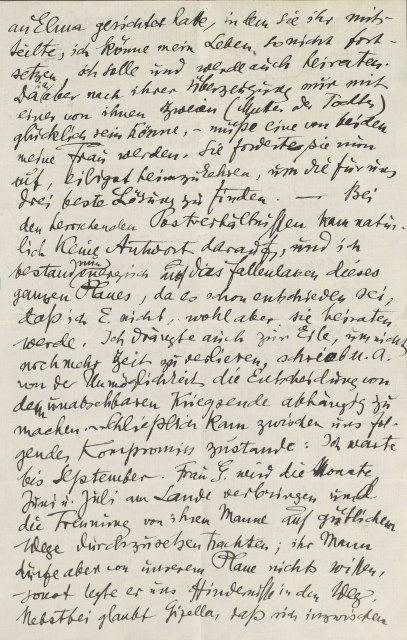 an Elma gerichtet hatte, in dem sie ihr mit-
teilte, ich könne mein Leben so nicht fort-
setzen ich solle und werde auch heiraten.
Da ich aber nach ihrer Überzeugung nur mit
einer von ihnen zweien (Mutter oder Tochter)
glücklich sein könne, – müsse eine von beiden
meine Frau werden. Sie forderte sie nun
auf, eiligst heimzukehren, um die für uns
drei beste Lösung zu finden. — Bei
den herrschenden Postverhältnissen kam natür-
lich keine Antwort darauf, und ich
bestand nun energisch auf das fallenlassen dieses
ganzen Planes, da es schon entschieden sei,
daß ich E. nicht, wohl aber sie heiraten
werde. Ich drängte auch zur Eile, um nicht
noch mehr Zeit zu verlieren, schrieb u. a.
von der Unmöglichkeit die Entscheidung von
dem unabsehbaren Kriegsende abhängig zu
machen. – Schließlich kam zwischen uns fol-
gendes Kompromiss zustande: Ich warte
bis September. Frau G. wird die Monate
Juni u. Juli am Lande verbringen und
die Trennung von ihrem Manne auf gütlichem
Wege durchzusetzen trachten; ihr Mann
dürfe aber von unserem Plane nichts wissen,
sonst legte er uns Hindernisse in den Weg.
Nebstbei glaubt Gizella, daß sich inzwischen